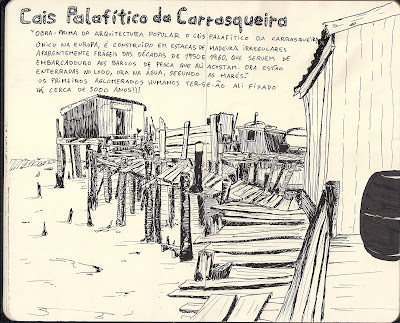 Cais Palafítico da Carrasqueira
"OBRA-PRIMA DA ARQUITECTURA POPULAR O CAIS PALAFÍTICO DA CARRASQUEIRA,
ÚNICO NA EUROPA, É CONSTRUÍDO EM ESTACAS DE MADEIRA IRREGULARES
APARENTEMENTE FRÁGEIS DAS DÉCADAS DE 1950 E 1960, QUE SERVEM DE
EMBARCADOURO AOS BARCOS DE PESCA QUE ALI ACOSTAM. ORA ESTÃO
ENTERRADAS NO LODO, ORA NA ÁGUA, SEGUNDO AS MARÉS."
OS PRIMEIROS AGLOMERADOS HUMANOS TER-SE-ÃO ALI FIXADO
HÁ CERCA DE 5000 ANOS!!!